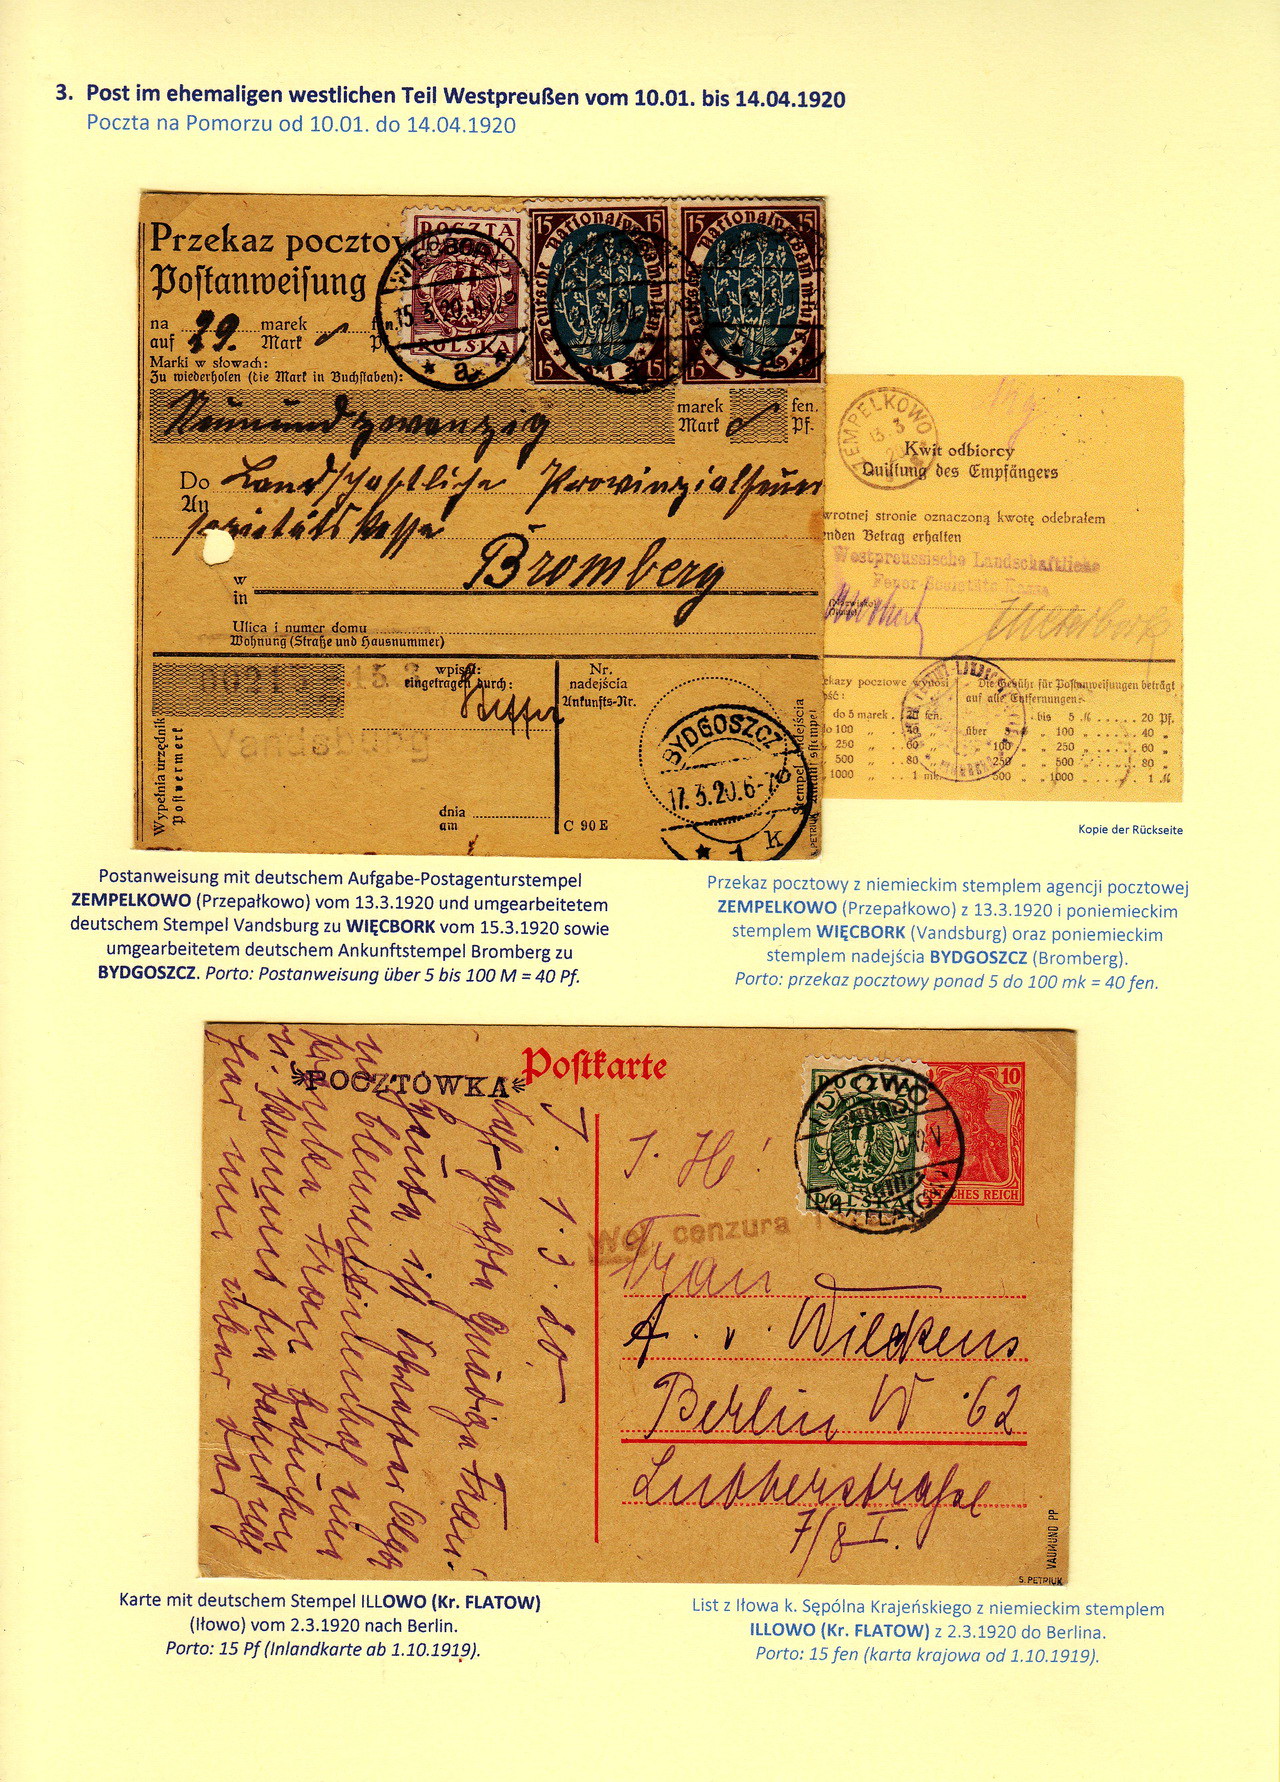 3. Post im ehemaligen westlichen Teil Westpreußen vom 10.01. bis 14.04.1920
Poczta na Pomorzu od 10.01. do 14.04.1920
Przekaz pocztow
Postanweisung
POCZTA
POLSKA
WIĘCBORK
15.3.20
* a *
15 15
Deutsche Nationalversammlung
15 1919 15
15 15
Deutsche Nationalversammlung
15 1919 15
na 29. marek fen.
auf Mark Pf.
Marki w słowach:
Zu wiederholen (die Mark in Buchstaben):
Neunundzwanzig
marek fen.
Mark Pf.
Do Landschaftliche Provinzialfeuer
An sozietätskasse
w Bromberg
in
Ulica i numer domu
Wohnung (Straße und Hausnummer)
Wypełnia urzędnik
Postvermerk
15 3
Vandsburg
wpisał:
eingetragen durch:
dnia
am
Nr.
nadejścia
Ankunfts-Nr.
C 90 E
BYDGOSZCZ
17.3.20.6-7
* 1 k
S. PETRIUK
ZEMPELKOWO
13.3
20
Kwit odbiorcy
Quittung des Empfängers
wrotnej stronie oznaczoną kwotę odebrałem
nden Betrag erhalten
Westpreussische Landschaftliche
Feuer-Societäts-Kasse
ekazy pocztowe wynosi Die Gebühr für Postanweisungen beträgt
auf alle Entfernungen:
do 5 marek 20 fen. bis 5 M 20 Pf.
o 100 „ 40 „ über 5 „ 100 „ 40 „
250 „ 60 „ 100 „ 250 „ 60 „
500 „ 80 „ 250 „ 500 „ 80 „
1000 „ 1 mk. 500 „ 1000 „ 1 M
Kopie der Rückseite
Postanweisung mit deutschem Aufgabe-Postagenturstempel
ZEMPELKOWO (Przepałkowo) vom 13.3.1920 und umgearbeitetem
deutschem Stempel Vandsburg zu WIĘCBORK vom 15.3.1920 sowie
umgearbeitetem deutschem Ankunftstempel Bromberg zu
BYDGOSZCZ. Porto: Postanweisung über 5 bis 100 M = 40 Pf.
Przekaz pocztowy z niemieckim stemplem agencji pocztowej
ZEMPELKOWO (Przepałkowo) z 13.3.1920 i poniemieckim
stemplem WIĘCBORK (Vandsburg) oraz poniemieckim
stemplem nadejścia BYDGOSZCZ (Bromberg).
Porto: przekaz pocztowy ponad 5 do 100 mk = 40 fen.
Postkarte
POCZTÓWKA
POCZTA
POLSKA
ILLOWO
FLATOW
10
DEUTSCHES REICH
J. 1.3.20
cenzura
Frau
A. v. Wilckens
Berlin W 62
Lutherstraße
7/8 I.
VAUMUND PP
S. PETRIUK
Karte mit deutschem Stempel ILLOWO (Kr. FLATOW)
(Iłowo) vom 2.3.1920 nach Berlin.
Porto: 15 Pf (Inlandkarte ab 1.10.1919).
List z Iłowa k. Sępólna Krajeńskiego z niemieckim stemplem
ILLOWO (Kr. FLATOW) z 2.3.1920 do Berlina.
Porto: 15 fen (karta krajowa od 1.10.1919).